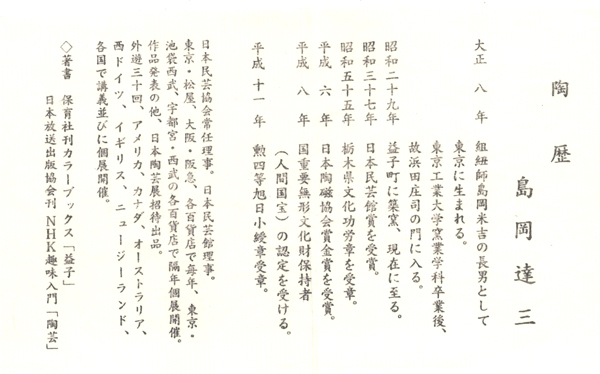 陶歴
島岡達三
大正八年　組紐師島岡米吉の長男として
東京に生まれる。
東京工業大学窯業学科卒業後、
故浜田庄司の門に入る。
昭和二十九年　益子町に築窯、現在に至る。
昭和三十七年　日本民芸館賞を受賞。
昭和五十五年　栃木県文化功労章を受章。
平成六年　日本陶磁協会賞金賞を受賞。
平成八年　国重要無形文化財保持者
（人間国宝）の認定を受ける。
平成十一年　勲四等旭日小綬章受章。
日本民芸協会常任理事。日本民芸館理事。
東京・松屋、大阪・阪急、各百貨店で毎年、東京・
池袋西武、宇都宮・西武の各百貨店で隔年個展開催。
作品発表の他、日本陶芸展招待出品。
外遊三十回、アメリカ、カナダ、オーストラリア、
西ドイツ、イギリス、ニュージーランド、
各国で講義並びに個展開催。
◇著書　保育社刊カラーブックス「益子」
日本放送出版協会刊　NHK趣味入門「陶芸」